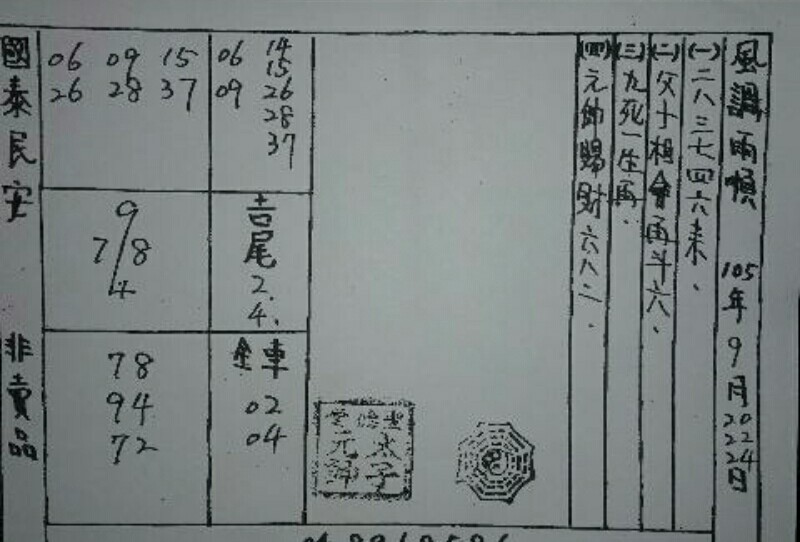 風調雨順 105年9月20 22 24日
(一)二八三七四六来.
(二)父十相會再斗六.
(三)九死一生再.
(四)元帥賜財六八二.
06 14
15
09 26
28
37
吉尾
2.
4.
金車
02
04
06 09 15
26 28 37
9
7/8
4
78
94
72
國泰民安 非賣品
太子
元帥